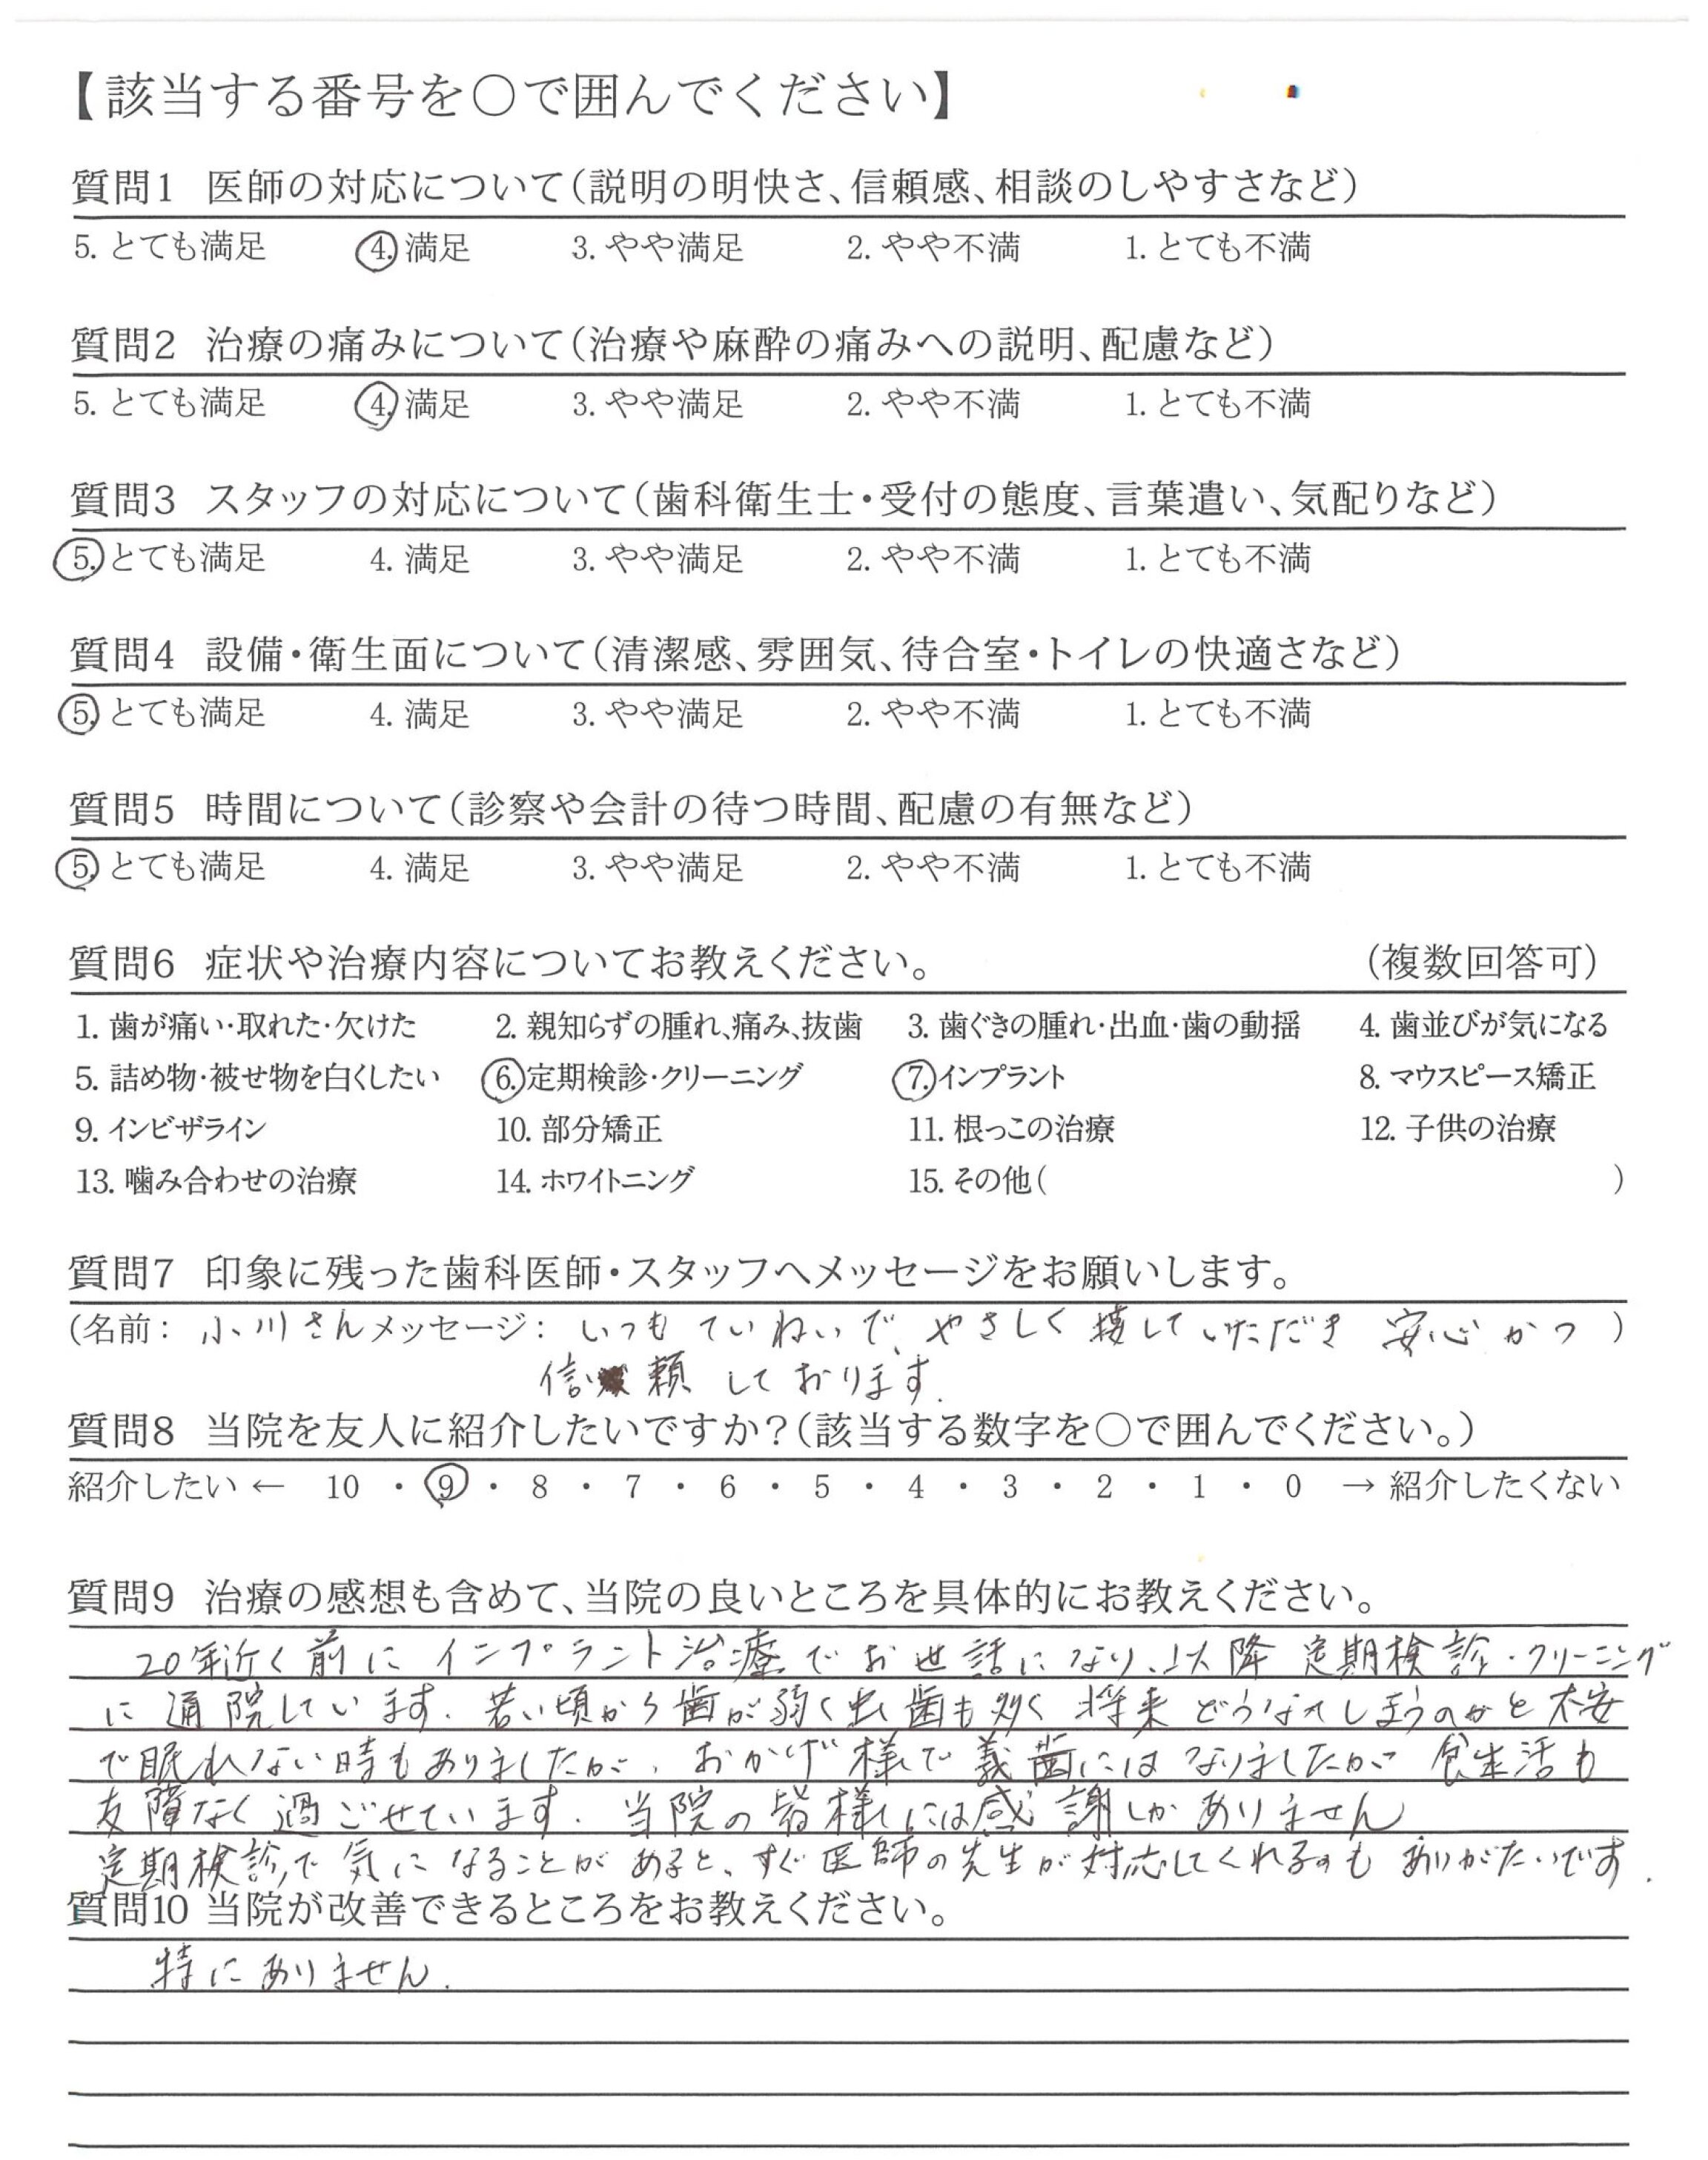 【該当する番号を〇で囲んでください】
質問1 医師の対応について(説明の明快さ、信頼感、相談のしやすさなど)
5. とても満足 4. 満足 3. やや満足 2. やや不満 1. とても不満
質問2 治療の痛みについて(治療や麻酔の痛みへの説明、配慮など)
5. とても満足 4. 満足 3. やや満足 2. やや不満 1. とても不満
質問3 スタッフの対応について(歯科衛生士・受付の態度、言葉遣い、気配りなど)
5. とても満足 4. 満足 3. やや満足 2. やや不満 1. とても不満
質問4 設備・衛生面について(清潔感、雰囲気、待合室・トイレの快適さなど)
5. とても満足 4. 満足 3. やや満足 2. やや不満 1. とても不満
質問5 時間について(診察や会計の待つ時間、配慮の有無など)
5. とても満足 4. 満足 3. やや満足 2. やや不満 1. とても不満
質問6 症状や治療内容についてお教えください。 (複数回答可)
1. 歯が痛い・取れた・欠けた 2. 親知らずの腫れ、痛み、抜歯 3. 歯ぐきの腫れ・出血・歯の動揺 4. 歯並びが気になる
5. 詰め物・被せ物を白くしたい 6. 定期検診・クリーニング 7. インプラント 8. マウスピース矯正
9. インビザライン 10. 部分矯正 11. 根っこの治療 12. 子供の治療
13. 噛み合わせの治療 14. ホワイトニング 15. その他( )
質問7 印象に残った歯科医師・スタッフへメッセージをお願いします。
(名前: 小川さん メッセージ: いつもていねいで、やさしく接していただき 安心かつ )
信頼しております.
質問8 当院を友人に紹介したいですか?(該当する数字を〇で囲んでください。)
紹介したい ← 10 ・ 9 ・ 8 ・ 7 ・ 6 ・ 5 ・ 4 ・ 3 ・ 2 ・ 1 ・ 0 → 紹介したくない
質問9 治療の感想も含めて、当院の良いところを具体的にお教えください。
20年近く前にインプラント治療でお世話になり、以降 定期検診・クリーニング
に通院しています. 若い頃から歯が弱く虫歯も多く 将来どうなってしまうのかと不安
で眠れない時もありましたが、おかげ様で義歯にはなりましたが 食生活も
支障なく過ごせています. 当院の皆様には感謝しかありません
定期検診で気になることがあると、すぐ医師の先生が対応してくれるのもありがたいです.
質問10 当院が改善できるところをお教えください。
特にありません.